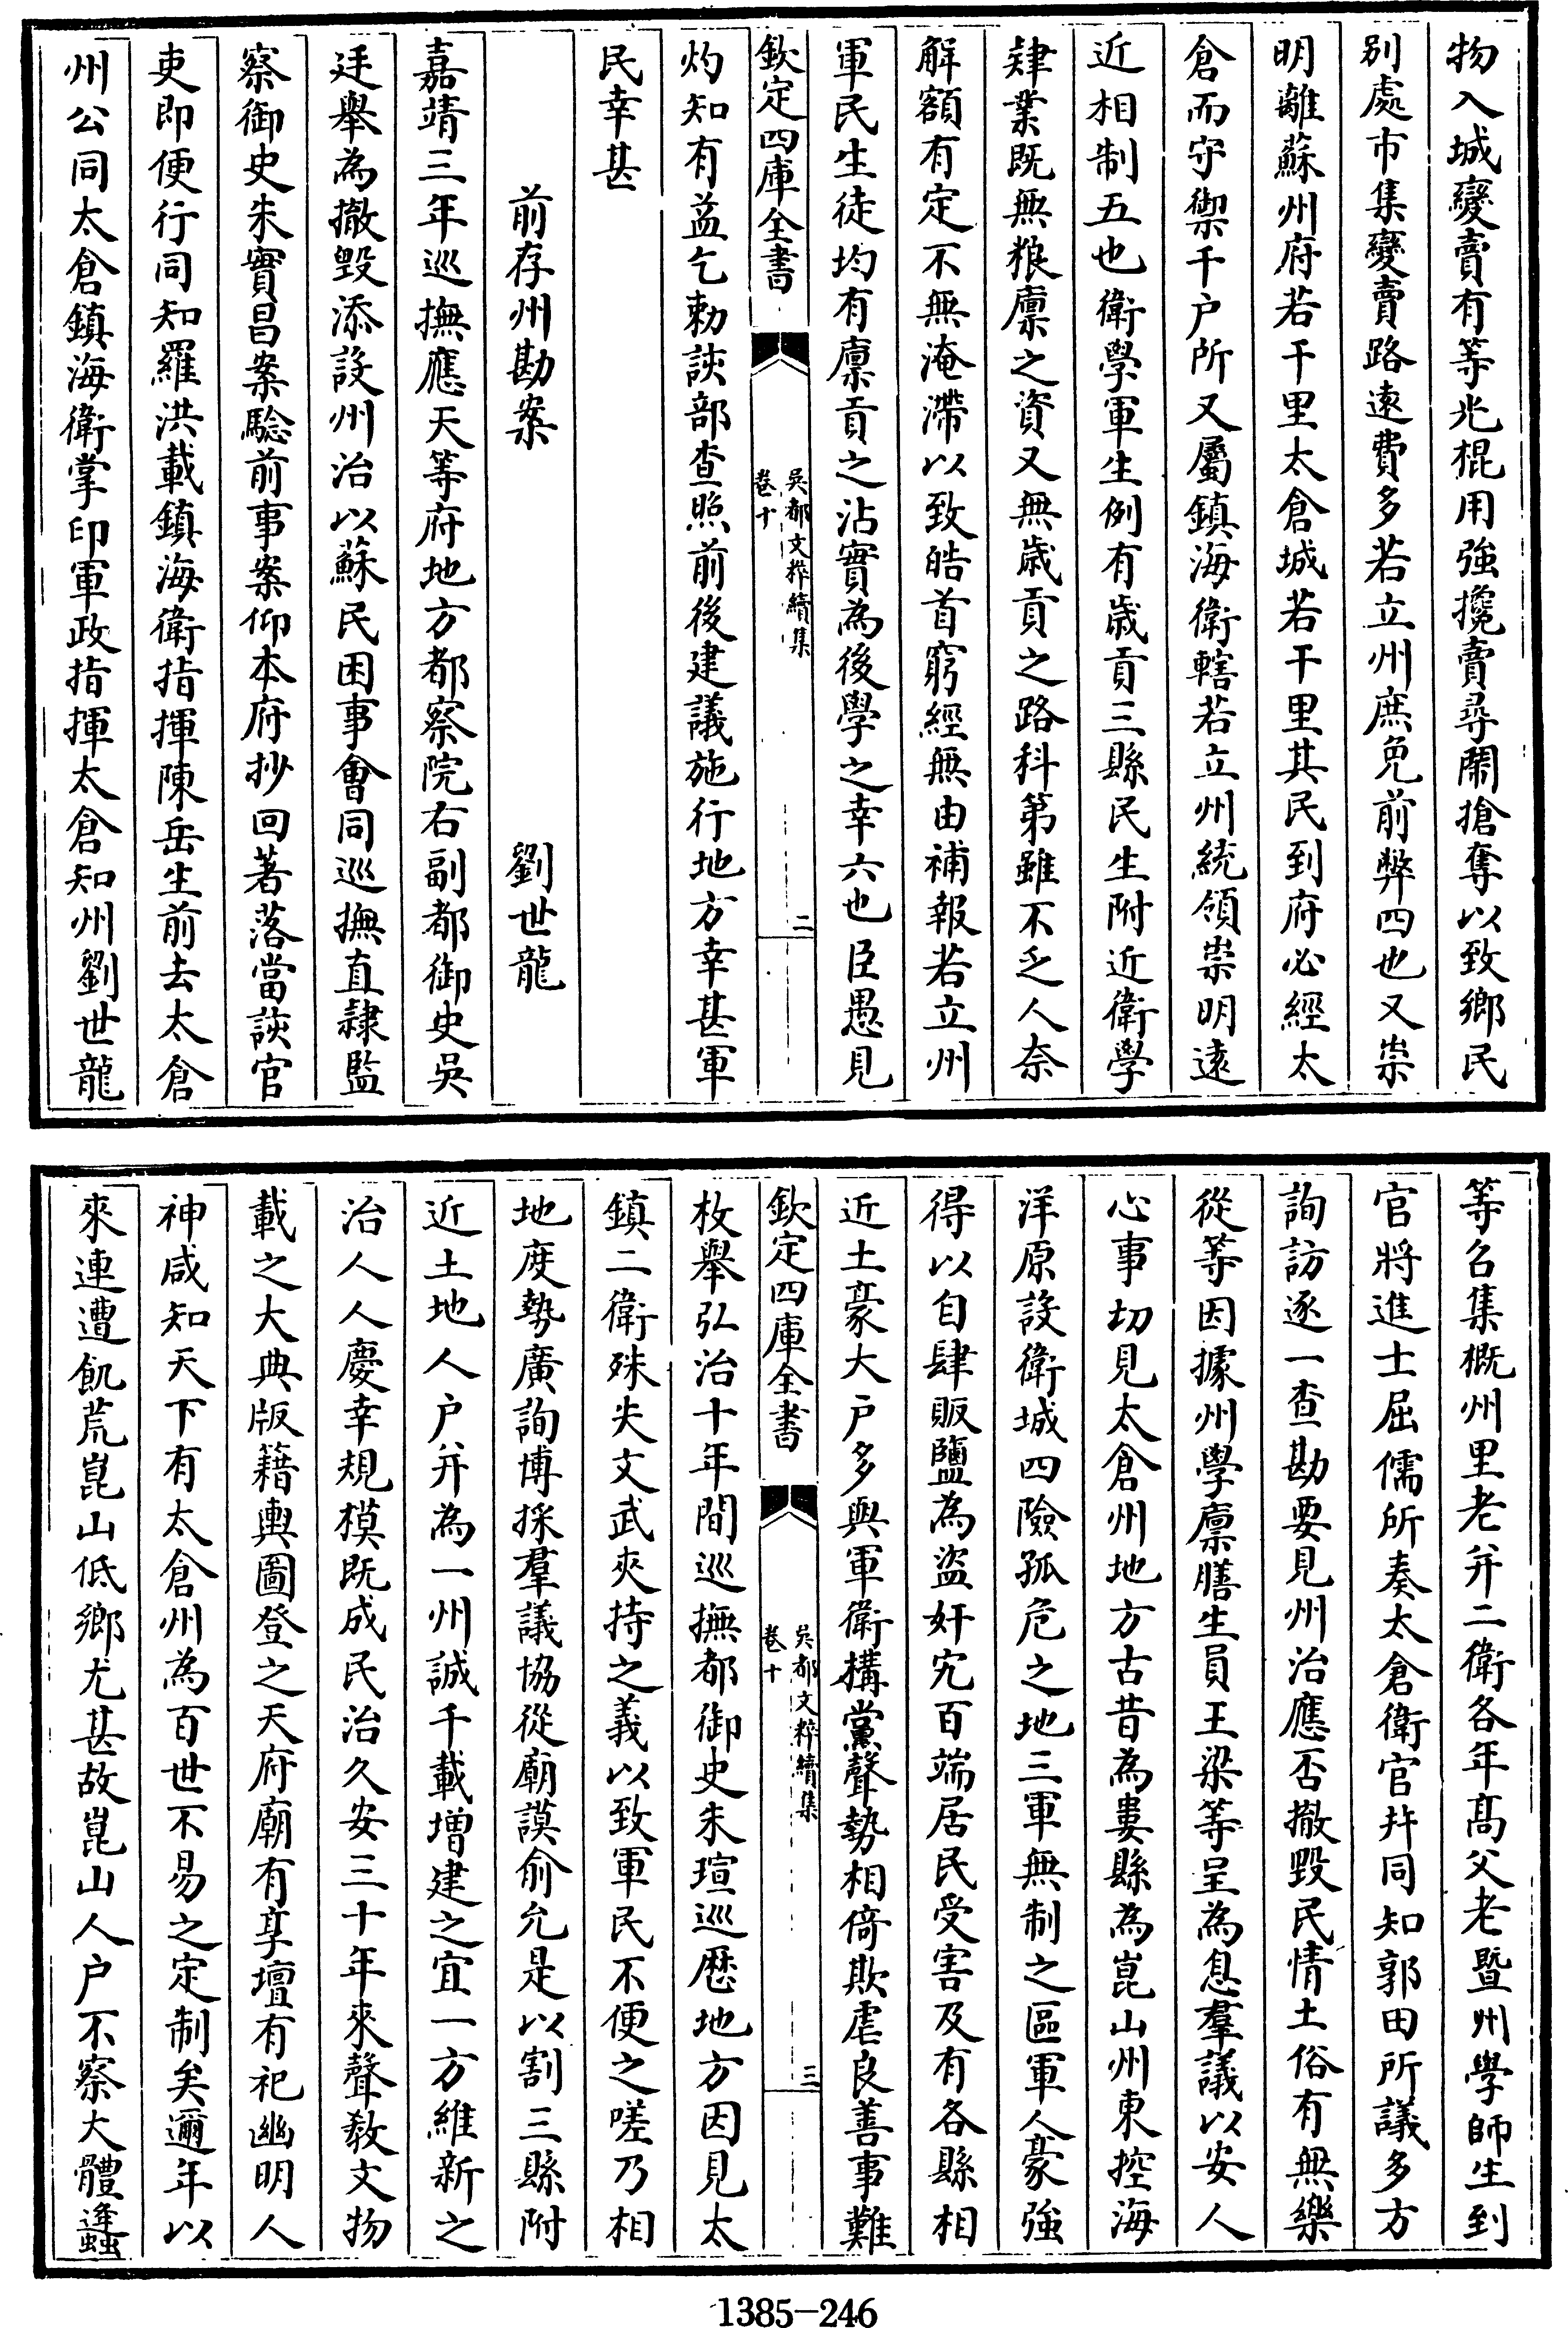 物入城變賣有等光棍用強攙賣尋鬧搶奪以致鄉民
別處市集變賣路遠費多若立州庶免前弊四也又崇
明離蘇州府若干里太倉城若干里其民到府必經太
倉而守禦千户所又屬鎮海衛轄若立州統領崇明遠
近相制五也衛學軍生例有歲貢三縣民生附近衛學
肄業既無粮廪之資又無歲貢之路科第雖不乏人奈
解額有定不無淹滯以致皓首窮經無由補報若立州
軍民生徒均有廪貢之沾實為後學之幸六也臣愚見
欽定四庫全書
吳都文粹續集
卷十
二
灼知有益乞勅該部查照前後建議施行地方幸甚軍
民幸甚
前存州勘案
劉世龍
嘉靖三年巡撫應天等府地方都察院右副都御史吳
廷舉為撤毀添設州治以蘇民困事會同巡撫直隸監
察御史朱實昌案驗前事案仰本府抄回著落當該官
吏即便行同知羅洪載鎮海衛指揮陳岳生前去太倉
州公同太倉鎮海衛掌印軍政指揮太倉知州劉世龍
等召集概州里老并二衛各年髙父老暨州學師生到
官將進士屈儒所奏太倉衛官并同知郭田所議多方
詢訪逐一查勘要見州治應否撤毀民情土俗有無樂
從等因據州學廪膳生員王梁等呈為息羣議以安人
心事切見太倉州地方古昔為婁縣為崑山州東控海
洋原設衛城四險孤危之地三軍無制之區軍人豪強
得以自肆販鹽為盜奸宄百端居民受害及有各縣相
近土豪大户多與軍衛構黨聲勢相倚欺虐良善事難
欽定四庫全書
吳都文粹續集
卷十
三
枚舉弘治十年間巡撫都御史朱瑄巡歴地方因見太
鎮二衛殊失文武夾持之義以致軍民不便之嗟乃相
地度勢廣詢博採羣議協從廟謨俞允是以割三縣附
近土地人户并為一州誠千載增建之宜一方維新之
治人人慶幸規模既成民治久安三十年來聲教文物
載之大典版籍輿圖登之天府廟有享壇有祀幽明人
神咸知天下有太倉州為百世不易之定制矣邇年以
來連遭飢荒崑山低鄉尤甚故崑山人户不察大體蜂
1385-246